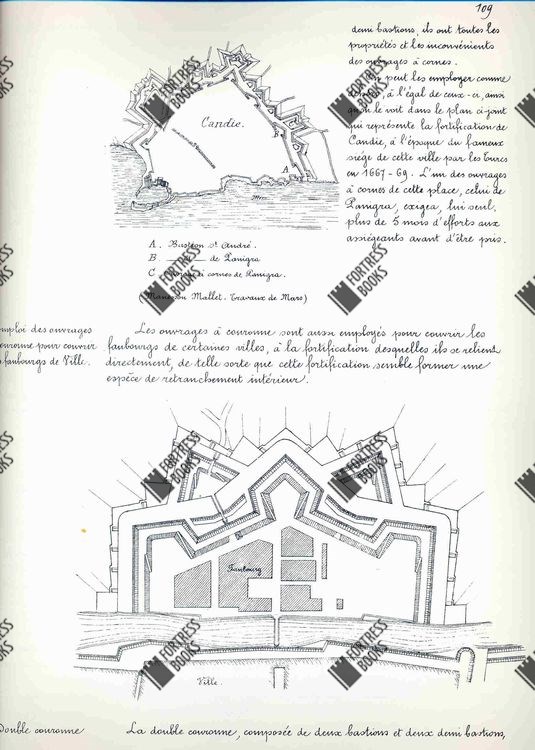 109
demi bastions, ils ont toutes les
propriétés et les inconvénients
des ouvrages à cornes.
peut les employer comme
à l'égal de ceux-ci, ainsi
le voit dans le plan ci-joint
qui représente la fortification de
Candie, à l'époque du fameux
siège de cette ville par les Turcs
en 1667-69. L'un des ouvrages
à cornes de cette place, celui de
Panigra, exigea, lui seul,
plus de 5 mois d'efforts aux
assiégeants avant d'être pris.
Candie.
A
C
Mer
A. Bastion St André.
B. —— de Panigra
C. à cornes de Panigra.
(Manesson Mallet. Travaux de Mars)
mploi des ouvrages
couronne pour couvrir
faubourgs de Ville.
Les ouvrages à couronne sont aussi employés pour couvrir les
faubourgs de certaines villes, à la fortification desquelles ils se relient
directement, de telle sorte que cette fortification semble former une
espèce de retranchement intérieur.
Faubourg
Ville
Double couronne
La double couronne, composée de deux bastions et deux demi bastions,
FORTRESS BOOKS
FORTRESS BOOKS
FORTRESS BOOKS
FORTRESS BOOKS
FORTRESS BOOKS
FORTRESS BOOKS
FORTRESS BOOKS
FORTRESS BOOKS